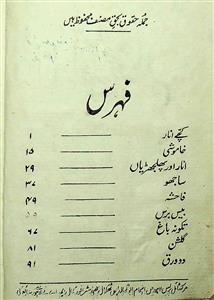 جملہ حقوق بحق مصنف محفوظ ہیں
فہرس
کچے انار ۱
خاموشی ۱۵
انار اور پھلجھڑیاں ۲۹
ساجھو ۳۷
فاحشہ ۴۹
بیس برس ۵۵
تکونہ باغ ۶۷
گلشن ۸۱
دو ورق ۹۱